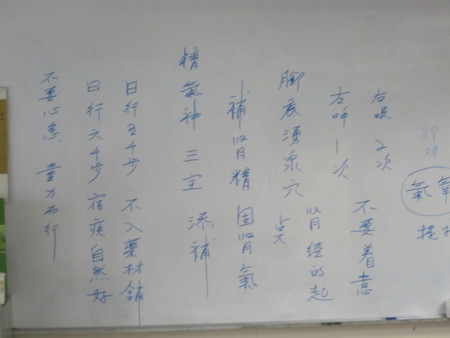 行功
氣氧
提
右吸 2次 不要着意
左呼 1次 腎經的起
腳底湧泉穴 点
補腎精 固腎氣
精氣神三宝 添補
日行五千步 不入藥材舖
日行六千步 宿疾自然好
不要心急 量力而行